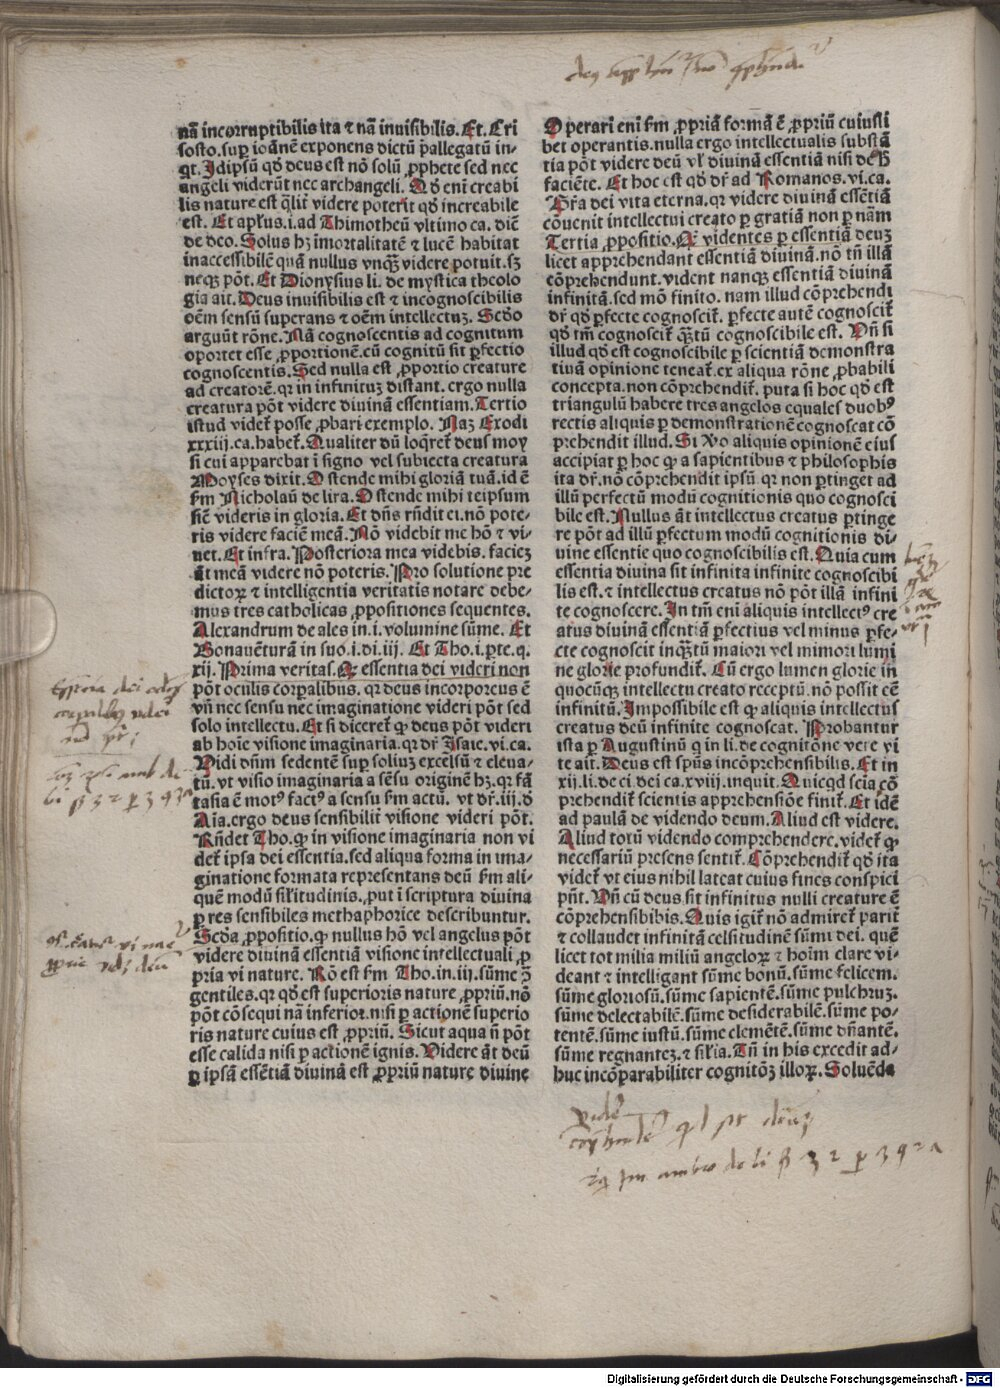 nā incorruptibilis ita ⁊ nā inuisibilis. Et. Cri
sosto. sup ioānē exponens dictū p̄allegatū in-
qt. Idipsū qđ deus est nō solū ꝓphete sed nec
angeli viderūt nec archangeli. Qđ eni creabi
lis nature est qͥlit̄ videre poterit qđ increabile
est. Et apl'us. i. ad Thimotheū vltimo ca. diē
de deo. Solus hꝫ īmortalitatē ⁊ lucē habitat
inaccessibilē quā nullus vnqꝫ videre potuit. sꝫ
neqꝫ pōt. Et Dionysius li. de mystica theolo
gia ait. Deus inuisibilis est ⁊ incognoscibilis
oēm sensū superans ⁊ oēm intellectuꝫ. Scďo
arguūt rōne. Nā cognoscentis ad cognitum
oportet esse ꝓportionē. cū cognitū sit ꝑfectio
cognoscentis. Sed nulla est ꝓportio creature
ad creatorē. qr in infinituꝫ distant. ergo nulla
creatura pōt videre diuinā essentiam. Tertio
istud videt̄ posse ꝓbari exemplo. Naꝫ Exodi
xxxiij. ca. habet̄. Qualiter dū loq̄ret̄ deus moy
si cui apparebat ī signo vel subiecta creatura
Moyses dixit. Ostende mihi gloriā tuā. id ē
ſm Nicholaū de lira. Ostende mihi teipsum
sic videris in gloria. Et dn̄s rn̄dit ei. nō pote-
ris videre faciē meā. Nō videbit me hō ⁊ vi-
uet. Et infra. Posteriora mea videbis. faciez
āt meā videre nō poteris. Pro solutione pre
dictoꝝ ⁊ intelligentia veritatis notare debe-
mus tres catholicas ꝓpositiones sequentes.
Alexandrum de ales in. i. volumine sūme. Et
Bonauēturā in suo. i. di. iij. Et Tho. i. ꝑte. q.
xij. Prima veritas. Qꝫ essentia dei videri non
pōt oculis corꝑalibus. qr deus incorporeus ē
vn̄ nec sensu nec imaginatione videri pōt sed
solo intellectu. Et si diceret̄ ꝙ deus pōt videri
ab hoīe visione imaginaria. qr dr̄ Isaie. vi. ca.
Vidi dn̄m sedentē suꝑ soliuꝫ excelsū ⁊ eleua-
tū. vt visio imaginaria a sēsu originē hꝫ. qr fā
tasia ē motꝰ factꝰ a sensu ſm actū. vt dr̄. iij. đ
Aīa. ergo deus sensibilit̄ visione videri pōt.
Rn̄det Tho. ꝙ in visione imaginaria non vi
det̄ ipsa dei essentia. sed aliqua forma in ima-
ginatione formata representans deū ſm ali-
quē modū sil'itudinis. put ī scriptura diuina
ꝑ res sensibiles methaphorice describuntur.
Scďa ꝓpositio. ꝙ nullus hō vel angelus pōt
videre diuinā essentiā visione intellectuali ꝓ
pria vi nature. Rō est ſm Tho. in. iij. sūme ꝯ̄
gentiles. qr qđ est superioris nature ꝓpriū. nō
pōt cōsequi nā inferior. nisi ꝑ actionē superio
ris nature cuius est ꝓpriū. Sicut aqua n̄ pōt
esse calida nisi ꝑ actionē ignis. Videre āt deū
ꝑ ipsā essētiā diuinā est ꝓpriū nature diuine
Operari eni ſm ꝓpriā formā ē ꝓpriū cuiusli
bet operantis. nulla ergo intellectualis substā
tia pōt videre deū vl' diuinā essentiā nisi deo h̄
faciēte. Et hoc est qđ dr̄ ad Romanos. vi. ca.
Gr̄a dei vita eterna. qr videre diuinā essētiā
cōuenit intellectui creato ꝑ gratiā non ꝑ nām
Tertia ꝓpositio. Qꝫ videntes ꝑ essentiā deuꝫ
licet apprehendant essentiā diuinā. nō tn̄ illā
cōprehendunt. vident nanqꝫ essentiā diuinā
infinitā. sed mō finito. nam illud cōprehendi
dr̄ qđ ꝑfecte cognoscit̄. ꝑfecte autē cognoscit̄
qđ tm̄ cognoscit̄ qꝫtū cognoscibile est. Vn̄ si
illud qđ est cognoscibile ꝑ scientiā demonstra
tiuā opinione teneat̄. ex aliqua rōne ꝓbabili
concepta. non cōprehendit̄. puta si hoc qđ est
triangulū habere tres angelos equales duobꝰ
rectis aliquis ꝑ demonstrationē cognoscat cō
prehendit illud. Si ꝟo aliquis opinionē eius
accipiat ꝑ hoc ꝙ a sapientibus ⁊ philosophis
ita dr̄. nō cōprehendit ipsū. qr non ꝑtinget ad
illū perfectū modū cognitionis quo cognosci
bile est. Nullus āt intellectus creatus ꝑtinge
re pōt ad illū ꝑfectum modū cognitionis di-
uine essentie quo cognoscibilis est. Quia cum
essentia diuina sit infinita infinite cognoscibi
lis est. ⁊ intellectus creatus nō pōt illā infini
te cognoscere. In tm̄ eni aliquis intellectꝰ cre
atus diuinā essentiā ꝑfectius vel minus ꝑfe-
cte cognoscit inqꝫtū maiori vel minori lumi
ne glorie profundit̄. Cū ergo lumen glorie in
quocūqꝫ intellectu creato receptū. nō possit cē
infinitū. Impossibile est ꝙ aliquis intellectus
creatus deū infinite cognoscat. Probantur
ista ꝑ Augustinū q in li. de cognitōne vere vi
te ait. Deus est spūs incōprehensibilis. Et in
xij. li. de ci. dei ca. xviij. inquit. Quicqd scia cō
prehendit̄ scientis apprehensiōe finit̄. Et idē
ad paulā de videndo deum. Aliud est videre.
Aliud totū videndo comprehendere. videt̄ ꝙ
necessariū presens sentit̄. Cōprehendit̄ qđ ita
videt̄ vt eius nihil lateat cuius fines conspici
pn̄t. Vn̄ cū deus sit infinitus nulli creature ē
cōprehensibibis. Quis igit̄ nō admiret̄ parit̄
⁊ collaudet infinitā celsitudinē sūmi dei. quē
licet tot milia miliū angeloꝝ ⁊ hoīm clare vi-
deant ⁊ intelligant sūme bonū. sūme felicem.
sūme gloriosū. sūme sapientē. sūme pulchruꝫ.
sūme delectabilē. sūme desiderabilē. sūme po-
tentē. sūme iustū. sūme clemētē. sūme dn̄antē.
sūme regnanteꝫ. ⁊ sil'ia. Tn̄ in his excedit ad-
huc incōparabiliter cognitōꝫ illoꝝ. Soluēda
Digitalisierung gefördert durch die Deutsche Forschungsgemeinschaft - DFG